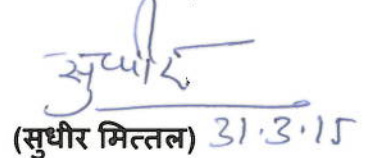 सुधीर
(सुधीर मित्तल) 31.3.15